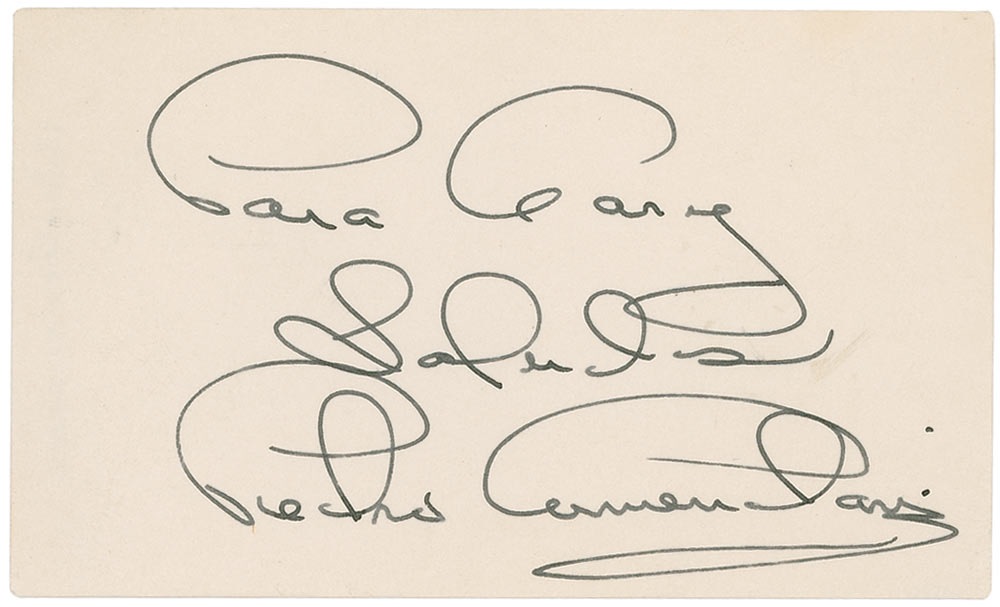 Para Gary
Saludos
Pedro Armendariz